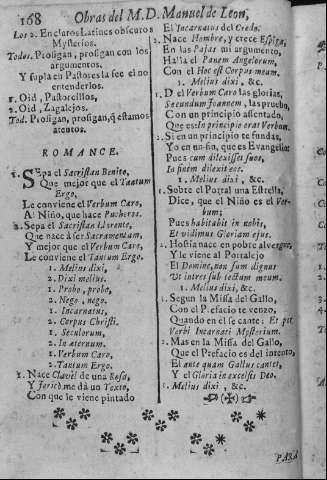 168 Obras del M. D. Manuel de Leon,
Los 2. En claros Latines obscuros
Mysterios.
Todos. Prosigan, prosigan con los
argumentos.
Y supla en Pastores la fee el no
entenderlos.
1. Oid, Pastorcillos,
2. Oid, Zagalejos.
Tod. Prosigan, prosigan, q̃ estamos
atentos.
ROMANCE.
1. SEpa el Sacristan Benito,
Que mejor que el Tantum
Ergo,
Le conviene el Verbum Caro,
Al Niño, que hace Pucheros.
2. Sepa el Sacristan Llorente,
Que nace à ser Sacramentum,
Y mejor que el Verbum Caro,
Le conviene el Tantum Ergo.
1. Melius dixi,
2. Dixi melius.
1. Probo, probo,
2. Nego, nego.
1. Incarnatus,
2. Corpus Christi.
1. Seculorum,
2. In æternum.
1. Verbum Caro,
2. Tantum Ergo.
1. Nace Clavel de una Rosa,
Y Jericò me dà un Texto,
Con que le viene pintado
El Incarnatus del Credo.
2. Nace Hombre, y crece Espiga,
En las Pajas mi argumento,
Halla el Panem Angelorum,
Con el Hoc est Corpus meum.
1. Melius dixi, &c.
1. D el Verbum Caro las glorias,
Secundum Joannem, las pruebo,
Con un principio assentado,
Que es In principio erat Verbum.
2. Si en un principio te fundas,
Yo en un fin, que es Evangelio
Pues cum dilexisset suos,
In finem dilexit eos.
1. Melius dixi, &c.
1. Sobre el Portal una Estrella,
Dice, que el Niño es el Ver-
bum;
Pues habitabit in nobis,
Et vidimus Gloriam ejus.
2. Hostia nace en pobre alvergue,
Y le viene al Portalejo
El Domine, non sum dignus
Ut intres sub tectum meum.
1. Melius dixi, &c.
1. Segun la Missa del Gallo,
Con el Prefacio te venzo,
Quando en èl se cante: Et per
Verbi Incarnati Mysterium.
2. Mas en la Missa del Gallo,
Que el Prefacio es del intento,
El ante quam Gallus cantet,
Y el Gloria in excelsis Deo.
1. Melius dixi, &c.
PARA